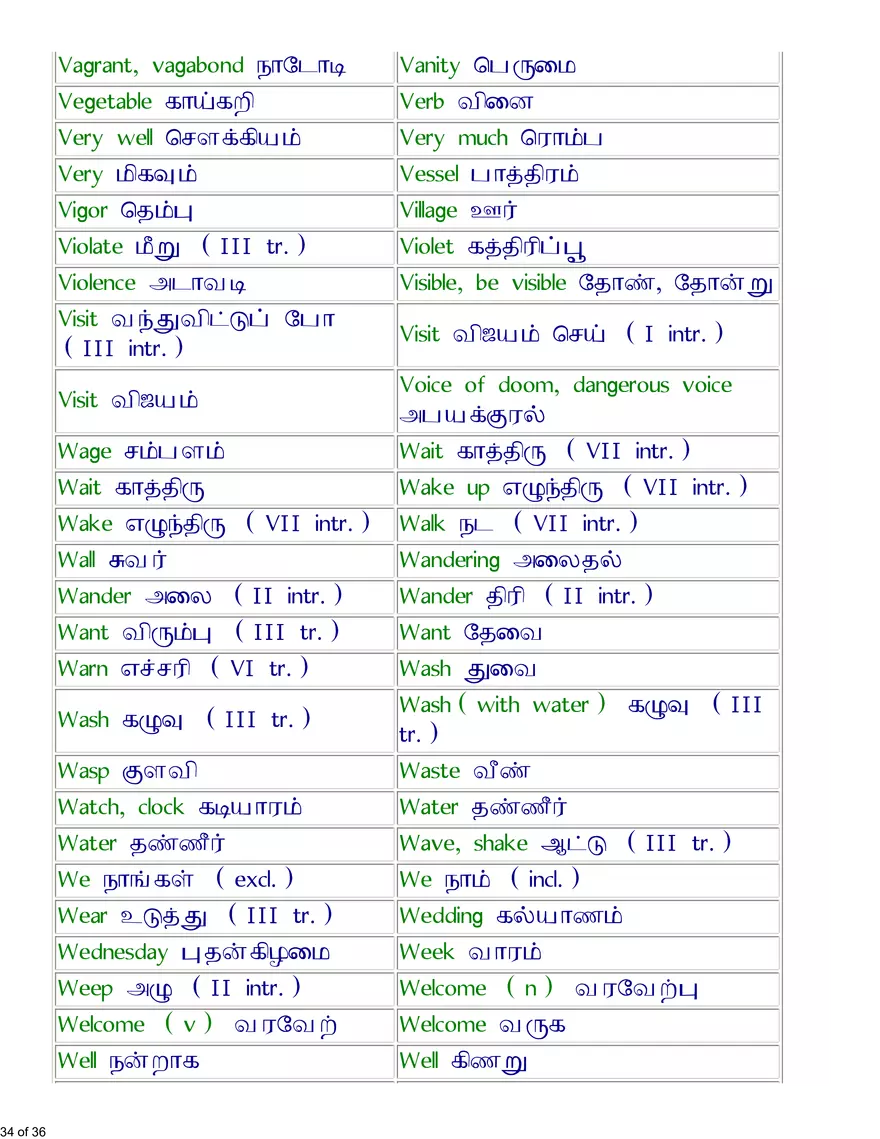 Vagrant, vagabond நாடோடி
Vanity பெருமை
Vegetable காய்கறி
Verb வினை
Very well சௌக்கியம்
Very much ரொம்ப
Very மிகவும்
Vessel பாத்திரம்
Vigor தெம்பு
Village ஊர்
Violate மீறு ( III tr. )
Violet கத்திரிப்பூ
Violence அடாவடி
Visible, be visible தோண், தோன்று
Visit வந்துவிட்டுப் போ
( III intr. )
Visit விஜயம் செய் ( I intr. )
Visit விஜயம்
Voice of doom, dangerous voice
அபயக்குரல்
Wage சம்பளம்
Wait காத்திரு ( VII intr. )
Wait காத்திரு
Wake up எழுந்திரு ( VII intr. )
Wake எழுந்திரு ( VII intr. )
Walk நட ( VII intr. )
Wall சுவர்
Wandering அலைதல்
Wander அலை ( II intr. )
Wander திரி ( II intr. )
Want விரும்பு ( III tr. )
Want தேவை
Warn எச்சரி ( VI tr. )
Wash துவை
Wash கழுவு ( III tr. )
Wash ( with water ) கழுவு ( III
tr. )
Wasp குளவி
Waste வீண்
Watch, clock கடியாரம்
Water தண்ணீர்
Water தண்ணீர்
Wave, shake ஆட்டு ( III tr. )
We நாங்கள் ( excl. )
We நாம் ( incl. )
Wear உடுத்து ( III tr. )
Wedding கல்யாணம்
Wednesday புதன்கிழமை
Week வாரம்
Weep அழு ( II intr. )
Welcome ( n ) வரவேற்பு
Welcome ( v ) வரவேற்
Welcome வருக
Well நன்றாக
Well கிணறு
34 of 36